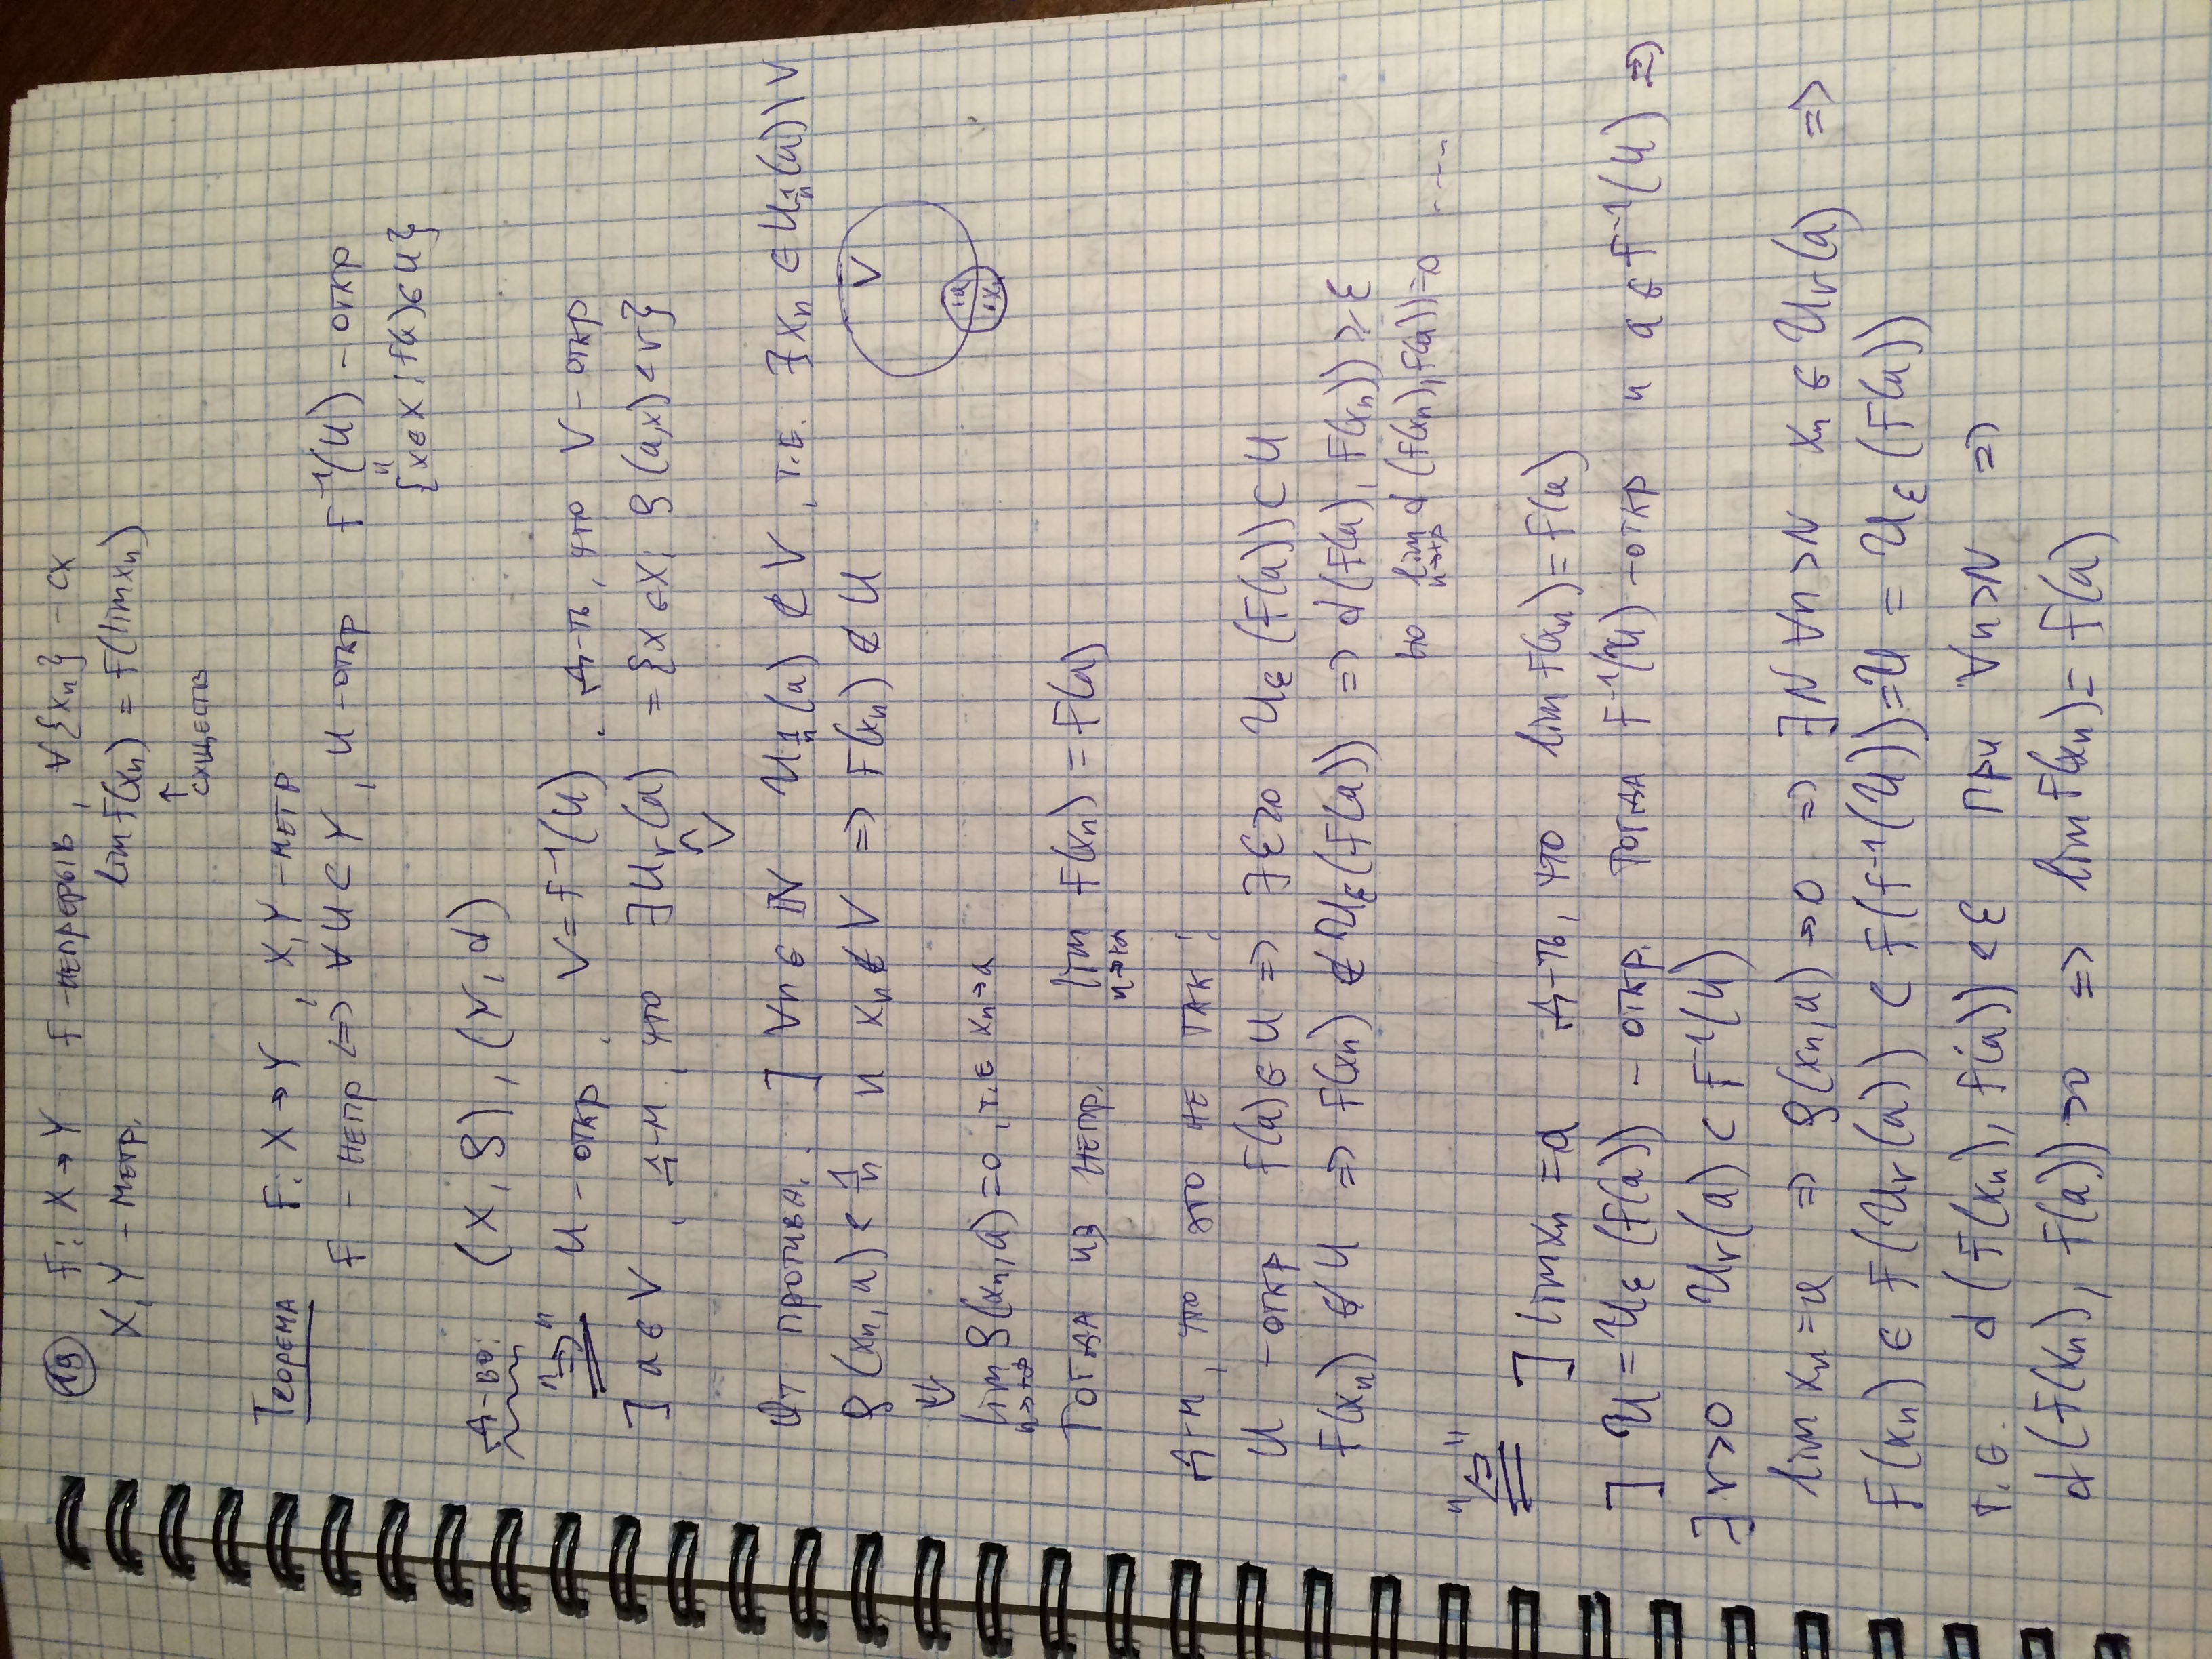 19 f: X → Y f - непрерыв, ∀{xₙ} - сх
X, Y - метр. lim f(xₙ) = f(lim xₙ)
↑
существ
Теорема f: X → Y, X, Y - метр
f - непр <=> ∀U ⊂ Y, U - откр f⁻¹(U) - откр
"
{x ∈ X: f(x) ∈ U}
Д-во: (X, ρ), (Y, d)
"=>" U - откр, V = f⁻¹(U). Д-ть, что V - откр
] a ∈ V, д-м, что ∃ Uᵣ(a) = {x ∈ X: ρ(a,x) < r}
∩
V
От против. ] ∀n ∈ ℕ U_{1/n}(a) ⊄ V, т.е. ∃ xₙ ∈ U_{1/n}(a) \ V
ρ(xₙ, a) < 1/n и xₙ ∉ V => f(xₙ) ∉ U
V
⇓
·a
·xₙ
lim ρ(xₙ, a) = 0, т.е xₙ → a
n→+∞
Тогда из непр. lim f(xₙ) = f(a)
n→+∞
Д-м, что это не так:
U - откр f(a) ∈ U => ∃ε>0 U_ε(f(a)) ⊂ U
f(xₙ) ∉ U => f(xₙ) ∉ U_ε(f(a)) => d(f(a), f(xₙ)) ≥ ε
но lim d(f(xₙ), f(a)) = 0 ----
n→+∞
"<="
] lim xₙ = a Д-ть, что lim f(xₙ) = f(a)
] U = U_ε(f(a)) - откр. Тогда f⁻¹(U) - откр и a ∈ f⁻¹(U) =>
∃ r>0 Uᵣ(a) ⊂ f⁻¹(U)
lim xₙ = a => ρ(xₙ, a) → 0 => ∃N ∀n>N xₙ ∈ Uᵣ(a) =>
f(xₙ) ∈ f(Uᵣ(a)) ⊂ f(f⁻¹(U)) = U = U_ε(f(a))
т.е. d(f(xₙ), f(a)) < ε при ∀n>N =>
d(f(xₙ), f(a)) → 0 => lim f(xₙ) = f(a)